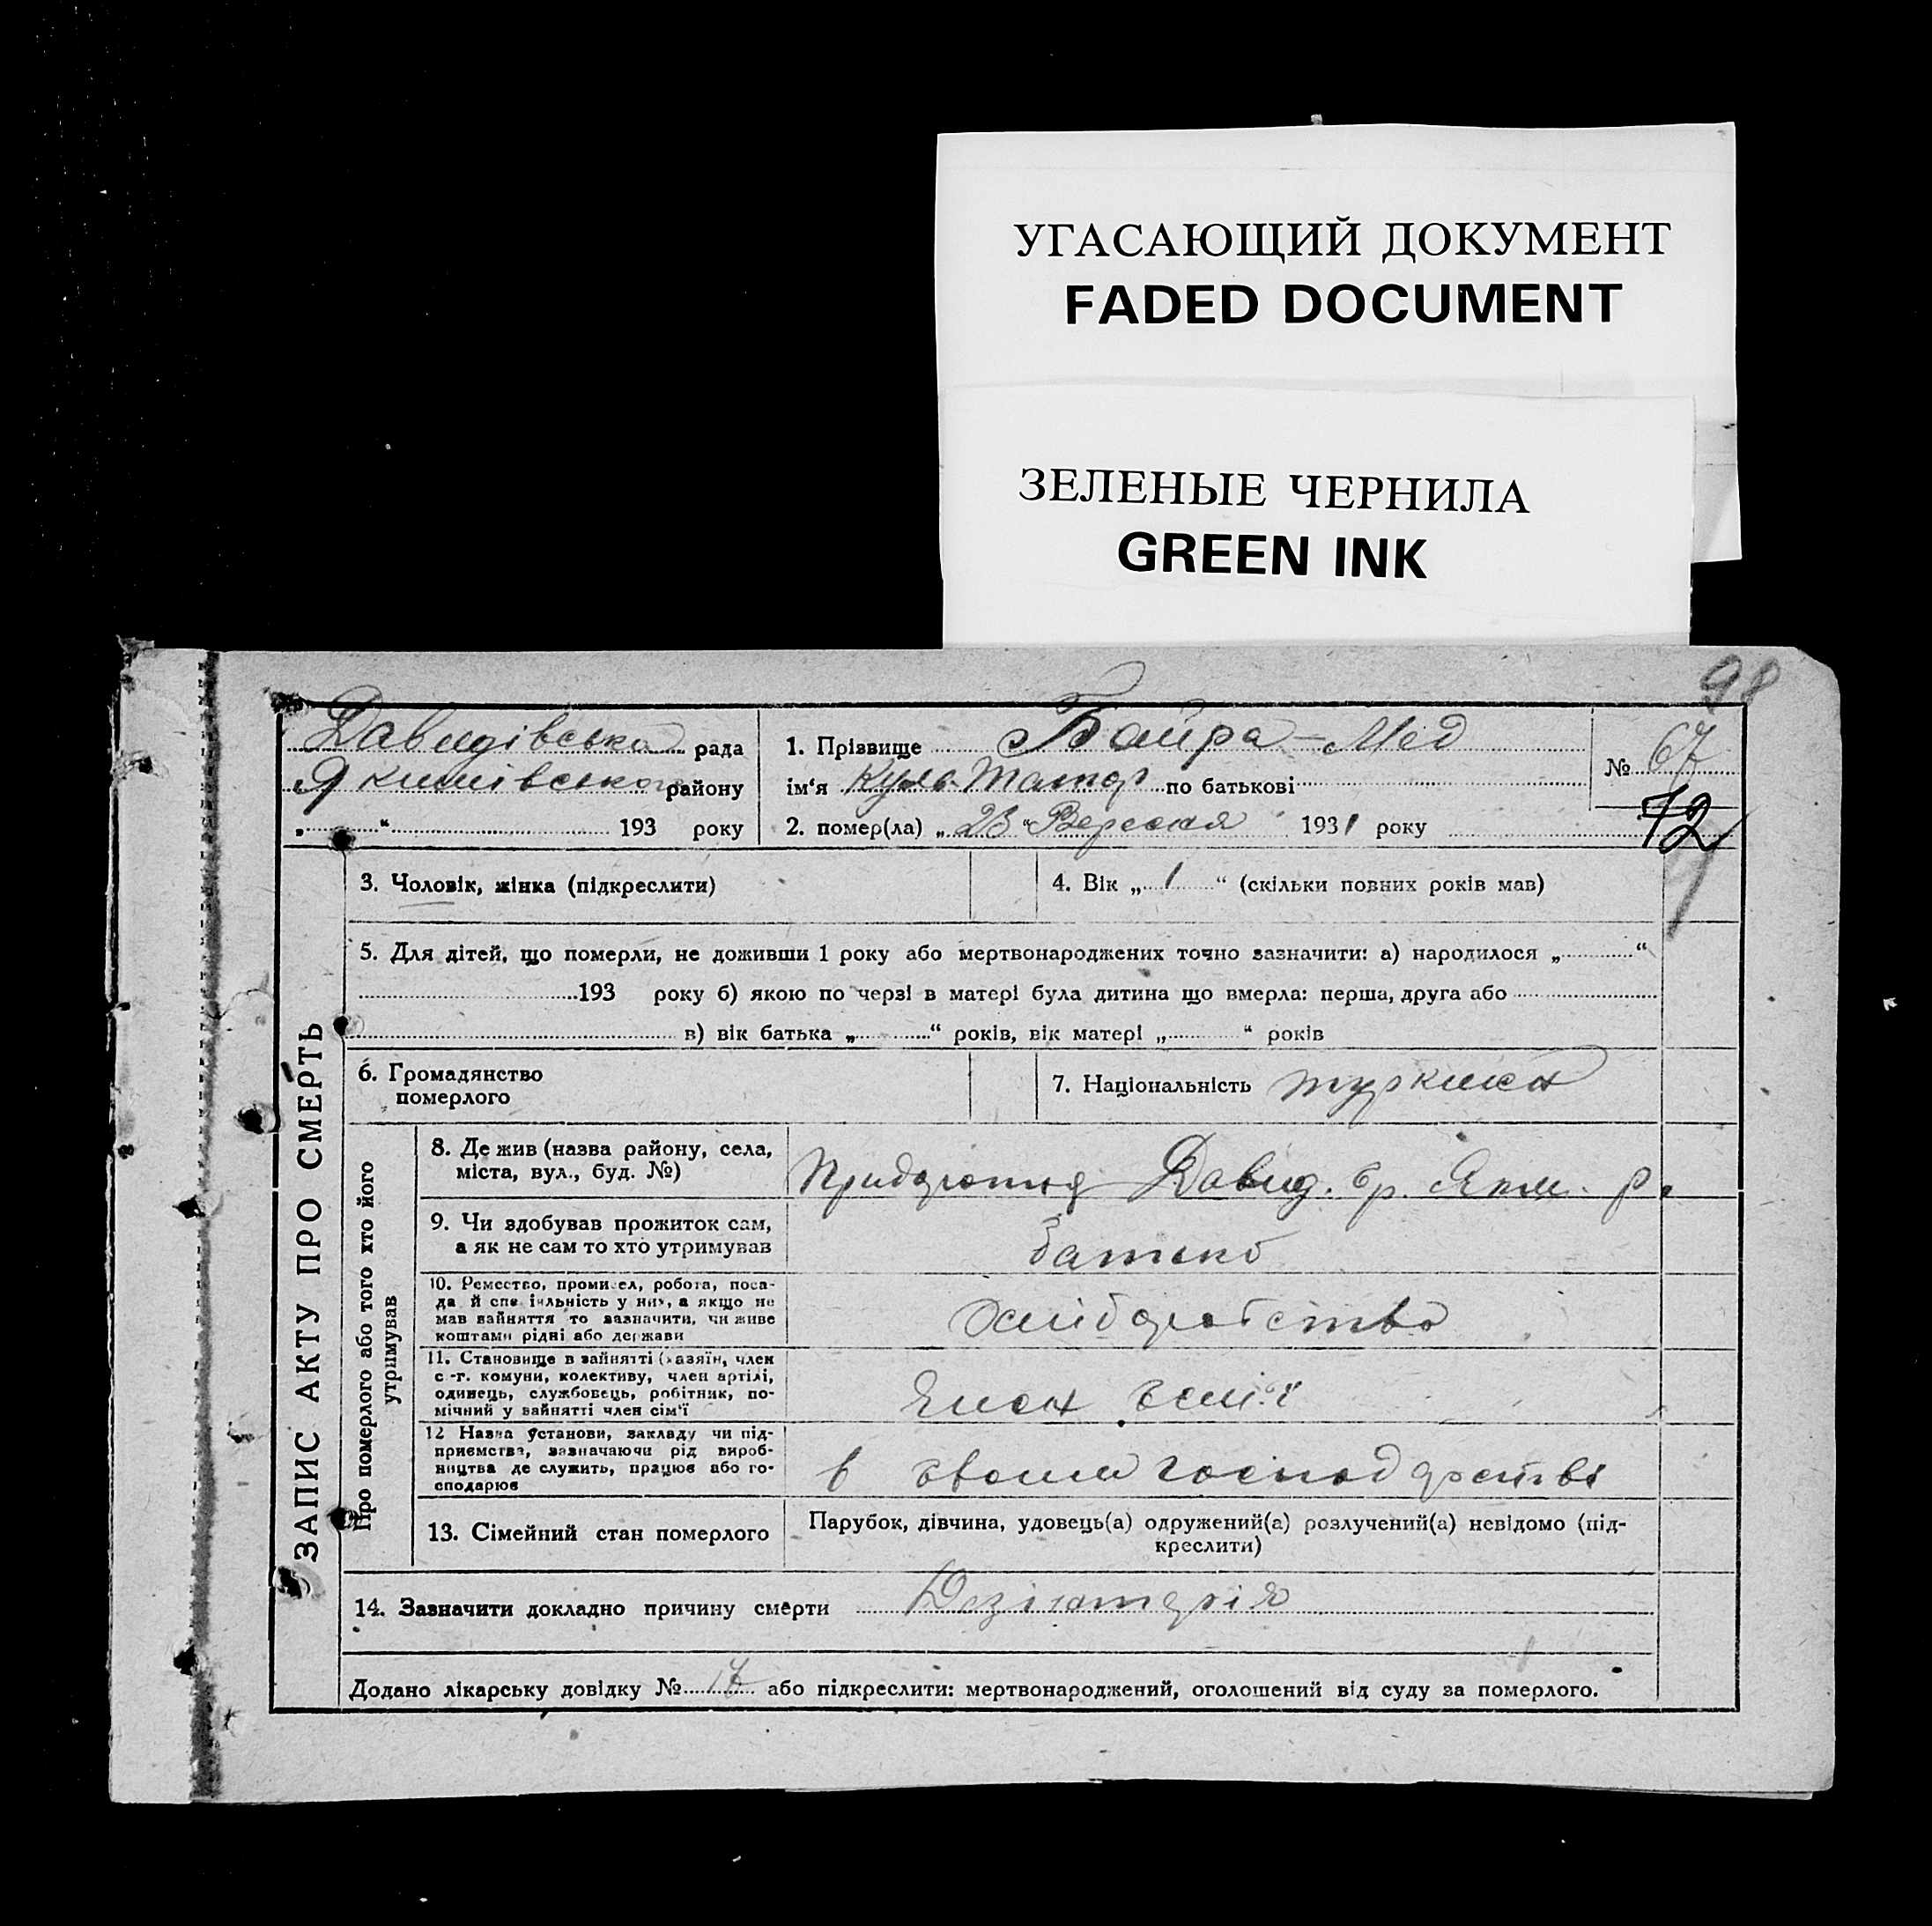 УГАСАЮЩИЙ ДОКУМЕНТ
FADED DOCUMENT
ЗЕЛЕНЫЕ ЧЕРНИЛА
GREEN INK
98
Давидівська рада
Якимівського району
„ “ 193 року
1. Прізвище Байра-Мед
ім‘я по батькові
2. помер(ла) „23“ Вересня 1931 року
№ 67
72
3. Чоловік, жінка (підкреслити)
4. Вік „1“ (скільки повних років мав)
5. Для дітей, що померли, не доживши 1 року або мертвонароджених точно зазначити: а) народилося „ “
193 року б) якою по черзі в матері була дитина що вмерла: перша, друга або
в) вік батька „ “ років, вік матері „ “ років
6. Громадянство
померлого
7. Національність туркмен
ЗАПИС АКТУ ПРО СМЕРТЬ
Про померлого або того хто його
утримував
8. Де жив (назва району, села,
міста, вул., буд. №)
Давид. Яким. р.
9. Чи здобував прожиток сам,
а як не сам то хто утримував
батько
10. Ремество, промисел, робота, поса-
да й спеціяльність у них, а якщо не
мав зайняття то зазначити, чи живе
коштами рідні або держави
хліборобство
11. Становище в зайнятті (хазяїн, член
с.-г. комуни, колективу, член артілі,
одинець, службовець, робітник, по-
мічний у зайнятті член сім‘ї
член семі'ї
12 Назва установи, закладу чи під-
приємства, зазначаючи рід вироб-
ництва де служить, працює або го-
сподарює
в своєм господарстві
13. Сімейний стан померлого
Парубок, дівчина, удовець(а) одружений(а) розлучений(а) невідомо (під-
креслити)
14. Зазначити докладно причину смерти
Додано лікарську довідку № 17 або підкреслити: мертвонароджений, оголошений від суду за померлого.